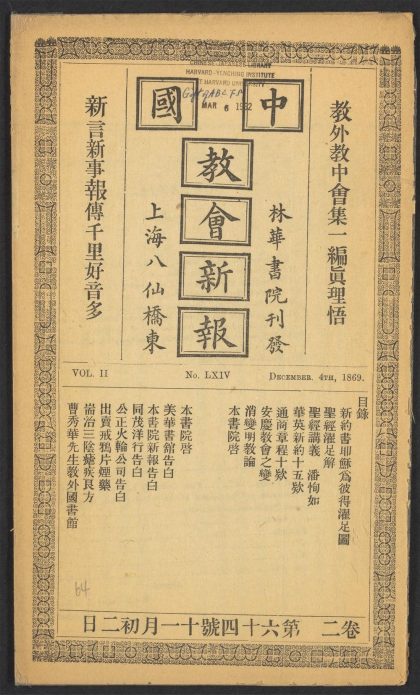 HARVARD-YENCHING INSTITUTE
AT HARVARD UNIVERSITY
MAR 6
教外教中會集一編眞理悟
林華書院刊發
中國
教會新報
上海八仙橋東
新言新事報傳千里好音多
VOL. II
No. LXIV
DECEMBER. 4TH, 1869.
目錄
新約書耶穌爲彼得濯足圖
聖經濯足解
聖經講義 潘恂如
華英新約十五欵
通商章程十欵
安慶教會之變
消變明教論
本書院啓
本書院啓
美華書館告白
本書院新報告白
同茂洋行告白
公正火輪公司告白
出賣戒鴉片煙藥
耑治三陰瘧疾良方
曹秀華先生教外國書館
卷二 第六十四號十一月初二日
64